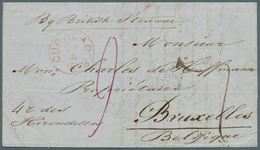 By British Steamer
CURACAO
Monsieur
Mons Charles de Hoffmann
Propriétaire
42 des
Hirondelles
Bruxelles
Belgique